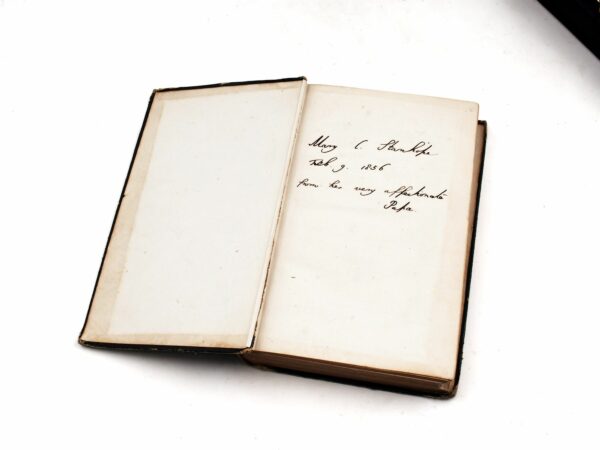 Mary C. Stanhope
Feb 9. 1856
from her very affectionate
Papa